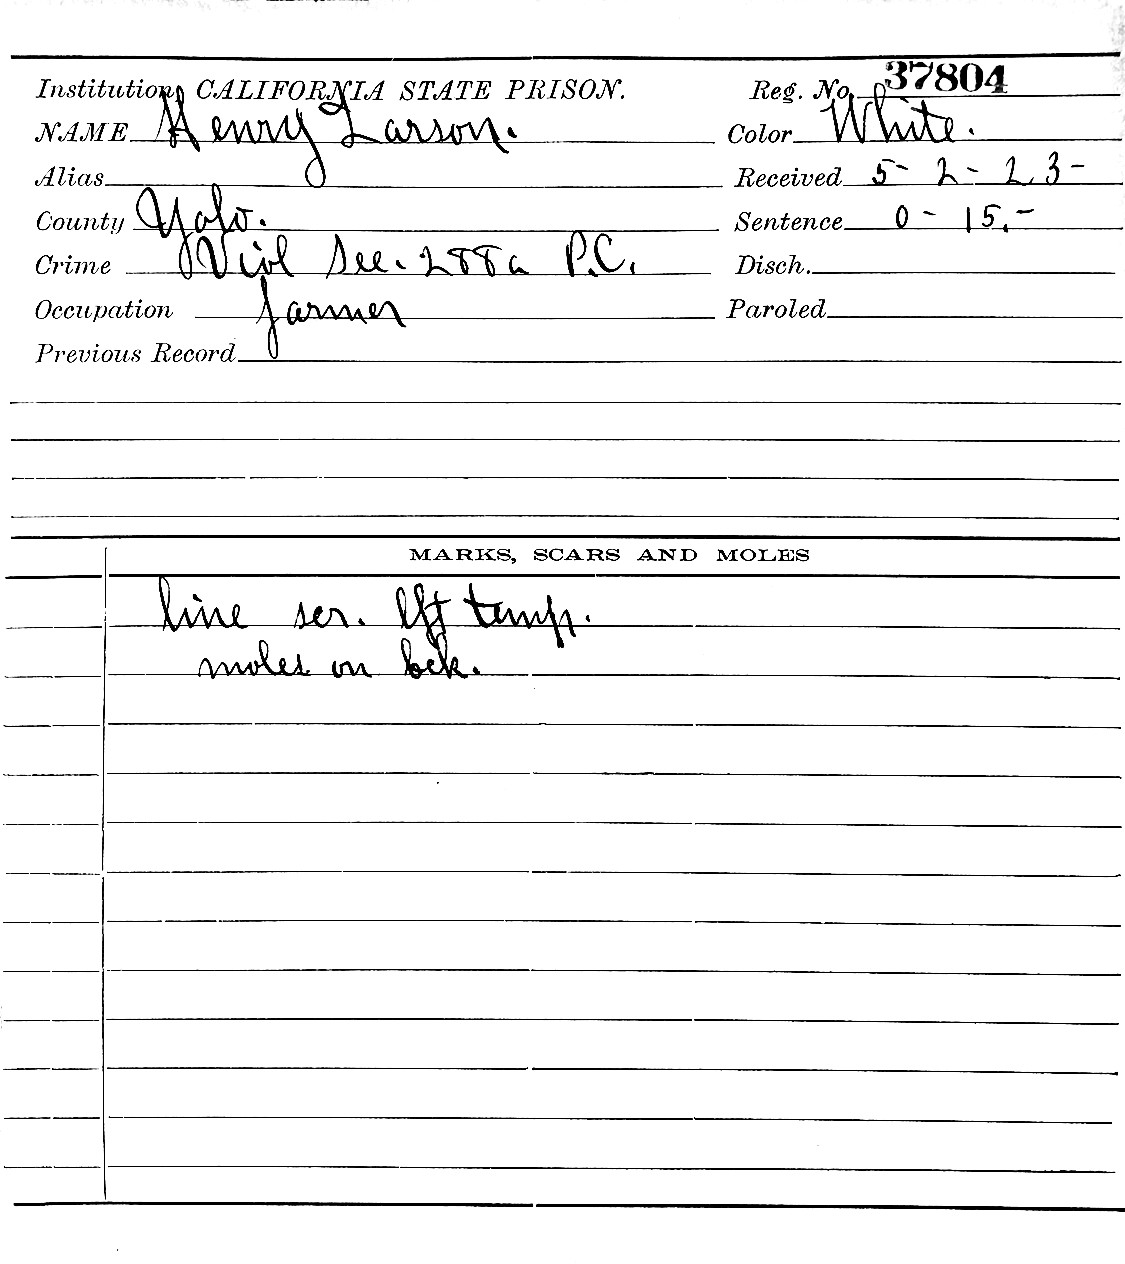 Institution CALIFORNIA STATE PRISON. Reg. No. 37804
NAME Henry Larson. Color White.
Alias Received 5-2-23-
County Yolo. Sentence 0-15.-
Crime Viol Sec. 288a P.C. Disch.
Occupation farmer Paroled
Previous Record
MARKS, SCARS AND MOLES
line scr. lft temp.
moles on bck.